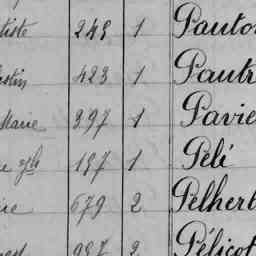 tiste 248 1 Pauto
stin 423 1 Pautr
Marie 397 1 Pavie
187 1 Péli
679 2 Pelherb
987 2 Pélicot